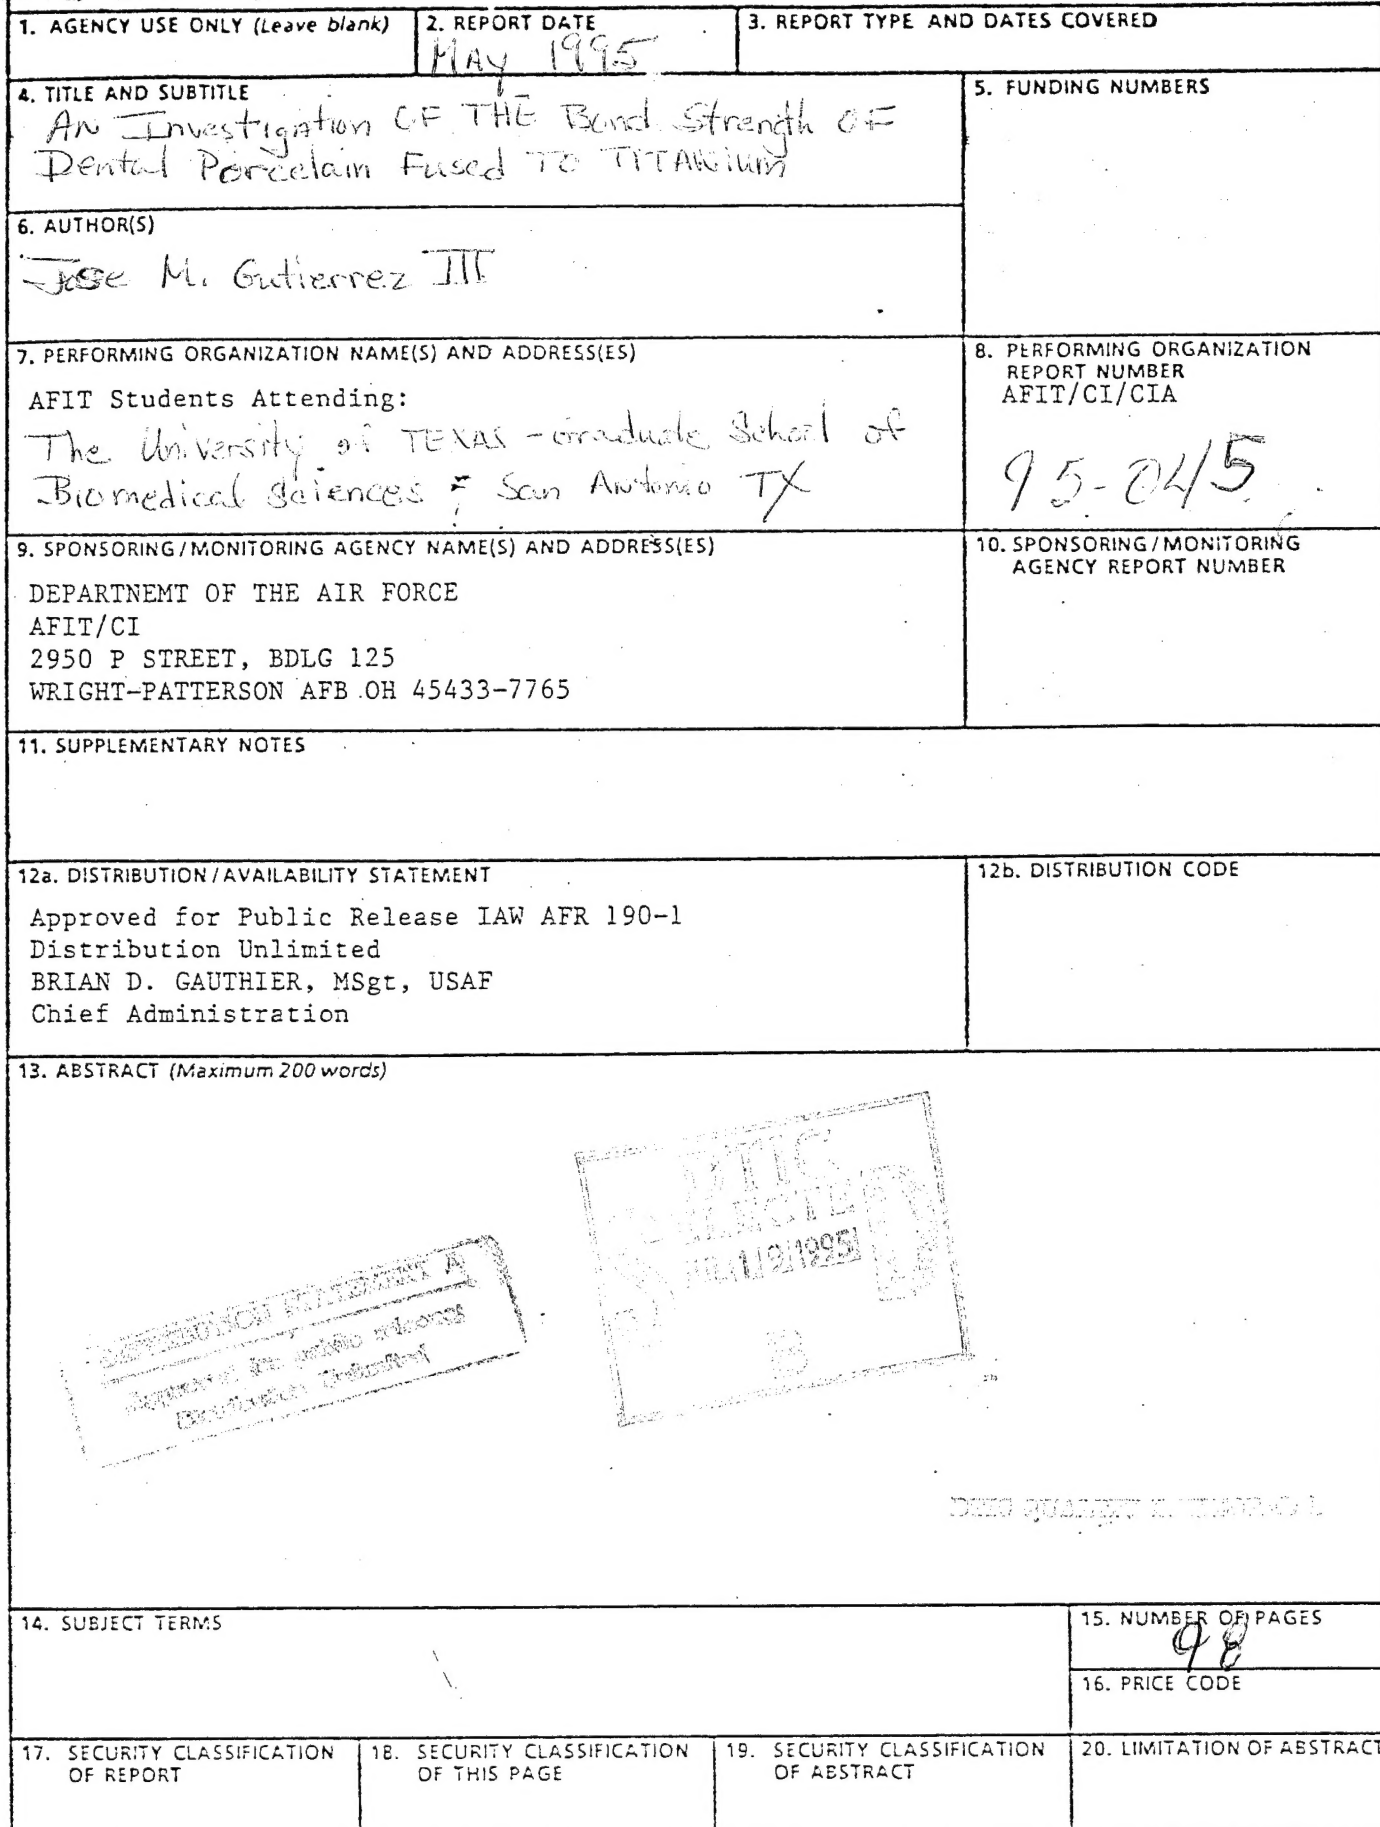 1. AGENCY USE ONLY (Leave blank)
2. REPORT DATE
MAY 1995
3. REPORT TYPE AND DATES COVERED
4. TITLE AND SUBTITLE
AN Investigation OF THE Bond Strength OF
Dental Porcelain Fused TO TITANium
5. FUNDING NUMBERS
6. AUTHOR(S)
Jose M. Gutierrez III
7. PERFORMING ORGANIZATION NAME(S) AND ADDRESS(ES)
AFIT Students Attending:
The University of TEXAS - Graduate School of
Biomedical Sciences San Antonio TX
8. PERFORMING ORGANIZATION
REPORT NUMBER
AFIT/CI/CIA
95-045
9. SPONSORING/MONITORING AGENCY NAME(S) AND ADDRESS(ES)
DEPARTNEMT OF THE AIR FORCE
AFIT/CI
2950 P STREET, BDLG 125
WRIGHT-PATTERSON AFB OH 45433-7765
10. SPONSORING/MONITORING
AGENCY REPORT NUMBER
11. SUPPLEMENTARY NOTES
12a. DISTRIBUTION/AVAILABILITY STATEMENT
Approved for Public Release IAW AFR 190-1
Distribution Unlimited
BRIAN D. GAUTHIER, MSgt, USAF
Chief Administration
12b. DISTRIBUTION CODE
13. ABSTRACT (Maximum 200 words)
DTIC
ELECTE
19 1995
S D
DISTRIBUTION STATEMENT A
Approved for public release
Distribution Unlimited
14. SUBJECT TERMS
15. NUMBER OF PAGES
98
16. PRICE CODE
17. SECURITY CLASSIFICATION
OF REPORT
18. SECURITY CLASSIFICATION
OF THIS PAGE
19. SECURITY CLASSIFICATION
OF ABSTRACT
20. LIMITATION OF ABSTRACT